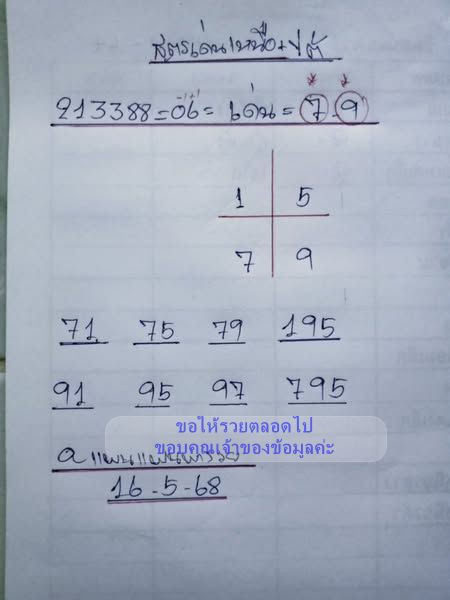 สูตรเด่นเหนือ
213388=06= เด่น=7-9
1 5
7 9
71 75 79 195
91 95 97 795
ขอให้รวยตลอดไป
ขอบคุณเจ้าของข้อมูลค่ะ
16-5-68